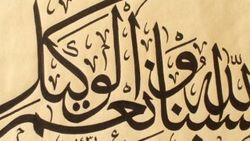 سبنا الله ونعم الوكيل